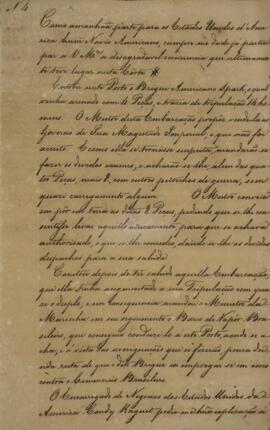 N 4
Como amanhãa, parte para os Estados Unidos d'America
hum Navio Americano, cumpre me dado já participar
a V. M.ce a desagradavel occurrencia que ultimamente
teve lugar nesta Corte
Entrou neste Porto o Brigue Americano Spark, o qual
vinha armado com Peças, e trazia de tripulação
homens. O Mestre desta Embarcação propôs vendela ao
Governo de Sua Magestade Imperial, o que não foi
acceito. E como ella se tornasse suspeita, mandarão se
fazer os devidos exames, e acharão se lhe, alem das quatro
Peças, mais com outros petrechos de guerra, sem
quasi carregamento algum. O Mestre conveio
em pôr em terra as Peças, pedindo que se lhe consentisse
levar aquelle para que se achava
authorisado, o que se lhe concedeo, dando se lhe os devidos
despachos para a sua sahida
Constou depois de ter sahido aquella Embarcação,
que ella tinha augmentado a sua Tripulação com
o duplo, e em consequencia mandou o Ministro da
Marinha em seu seguimento o Barco de Vapor Brasileiro,
que conseguio conduzi-lo a este Porto, aonde se acha,
e á vista das averiguações que se fazem, pouca duvida
resta de que o dito Brigue hia empregar se em corso
contra o Commercio Brasileiro.
O Encarregado de Negocios dos Estados Unidos da
America Condy Raguet pedio me huma explicação a